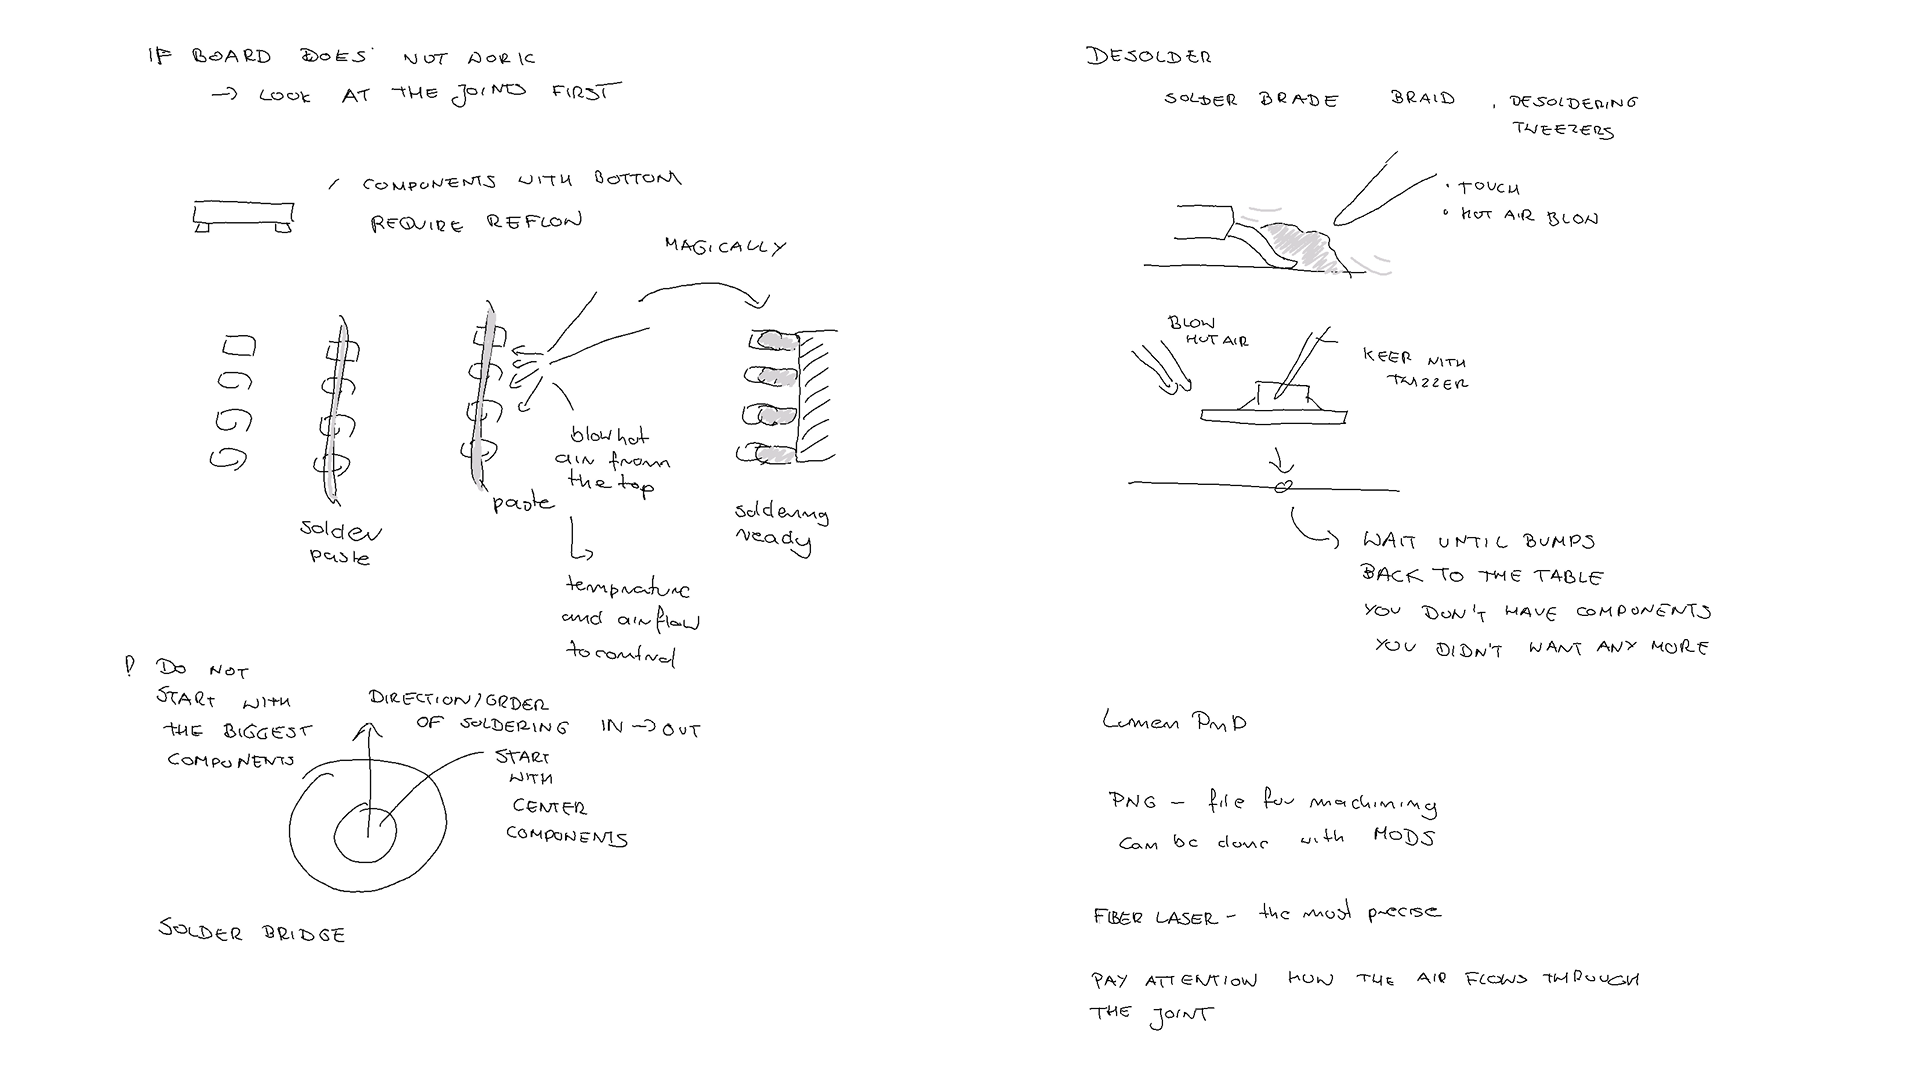 IF BOARD DOES NOT WORK
→ LOOK AT THE JOINTS FIRST
COMPONENTS WITH BOTTOM
REQUIRE REFLOW
MAGICALLY
solder
paste
paste
blow hot
air from
the top
temprature
and airflow
to control
soldering
ready
! DO NOT
START WITH
THE BIGGEST
COMPONENTS
DIRECTION/ORDER
OF SOLDERING IN → OUT
START
WITH
CENTER
COMPONENTS
SOLDER BRIDGE
DESOLDER
SOLDER BRADE BRAID , DESOLDERING
TWEEZERS
• TOUCH
• HOT AIR BLOW
BLOW
HOT AIR
KEEP WITH
TWIZZER
WAIT UNTIL BUMPS
BACK TO THE TABLE
YOU DON'T HAVE COMPONENTS
YOU DIDN'T WANT ANY MORE
Lumen PnP
PNG – file for machining
can be done with MODS
FIBER LASER – the most precise
PAY ATTENTION HOW THE AIR FLOWS THROUGH
THE JOINT